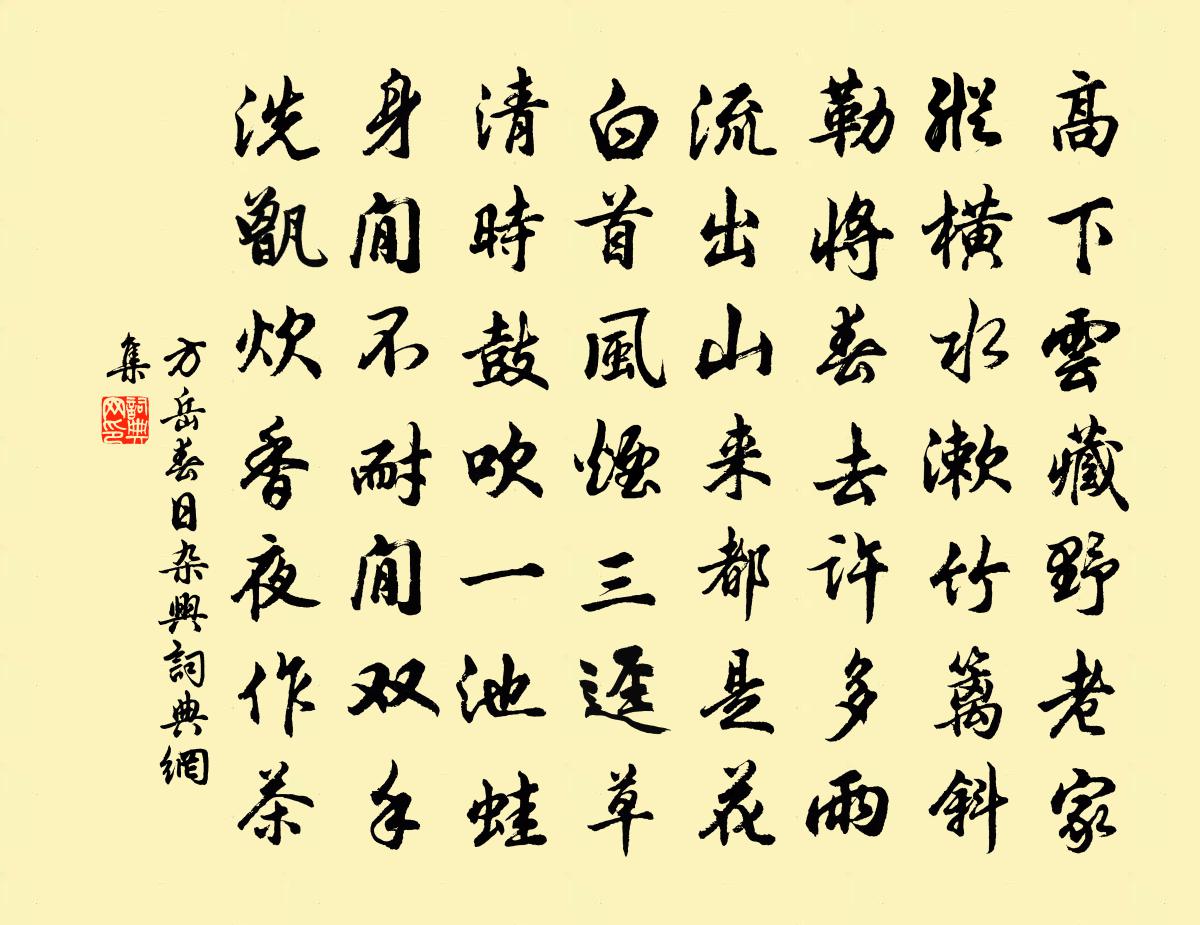 高下雲藏野老家
縱橫水漱竹籬斜
勒將春去許多雨
流出山来都是花
白首風煙三逕草
清時鼓吹一池蛙
身閒不耐閒双手
洗甑炊香夜作茶
方岳春日杂興詞典網
集
詞典網印